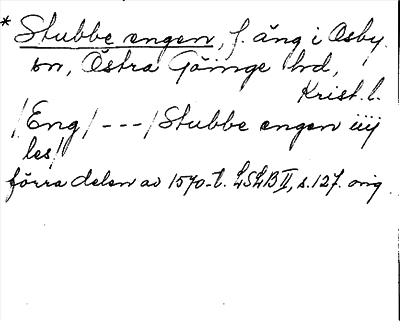 * Stubbe engen, f. äng i Osby
sn, Östra Göinge hrd,
Krist. l.
/Eng/ --- / Stubbe engen iiij
les/
förra delen av 1570-t. LSLB II, s. 127. orig